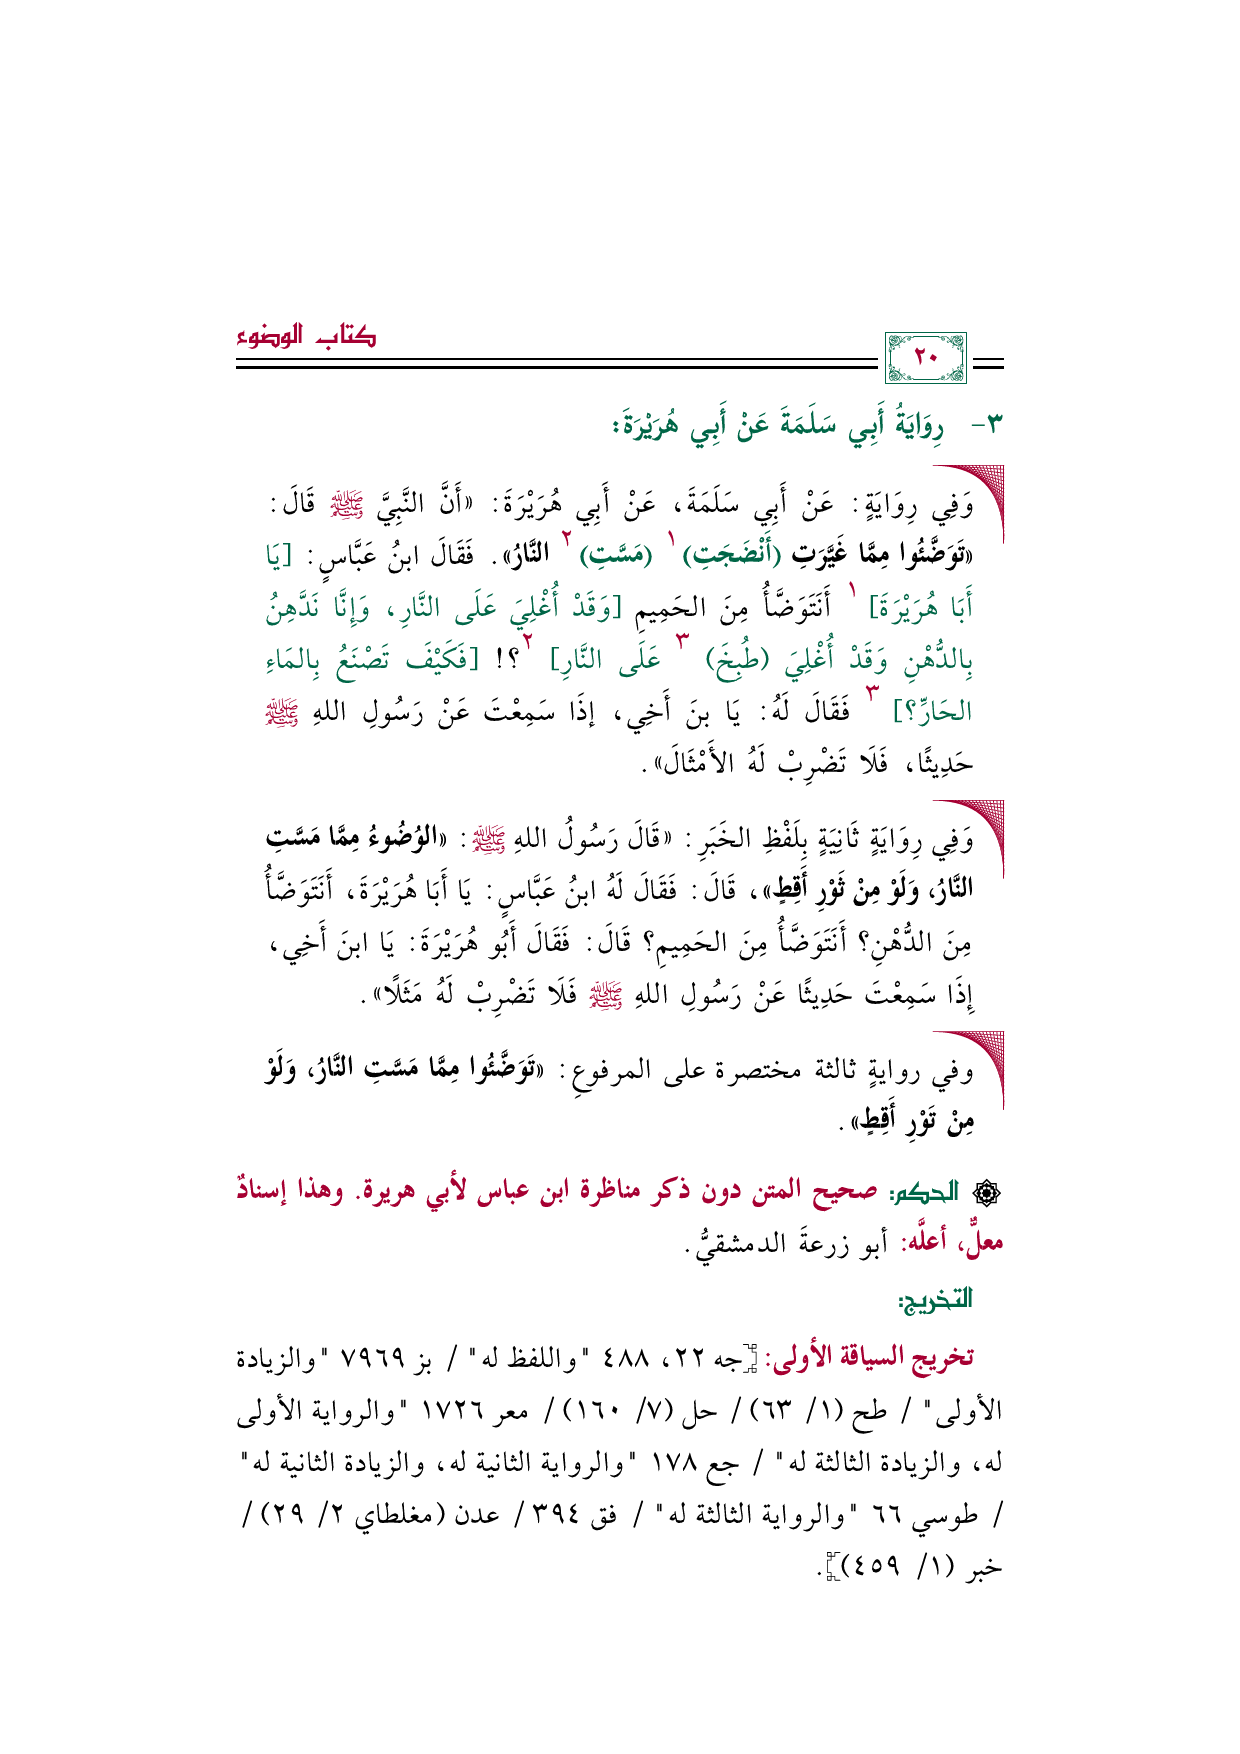 كتاب الوضوء
٢٠
٣- رِوَايَةُ أَبِي سَلَمَةَ عَنْ أَبِي هُرَيْرَةَ:
وَفِي رِوَايَةٍ: عَنْ أَبِي سَلَمَةَ، عَنْ أَبِي هُرَيْرَةَ: «أَنَّ النَّبِيَّ ﷺ قَالَ:
«تَوَضَّئُوا مِمَّا غَيَّرَتِ (أَنْضَجَتِ) ١ (مَسَّتِ) ٢ النَّارُ». فَقَالَ ابنُ عَبَّاسٍ: [يَا
أَبَا هُرَيْرَةَ] ١ أَنَتَوَضَّأُ مِنَ الحَمِيمِ [وَقَدْ أُغْلِيَ عَلَى النَّارِ، وَإِنَّا نَدَّهِنُ
بِالدُّهْنِ وَقَدْ أُغْلِيَ (طُبِخَ) ٣ عَلَى النَّارِ] ٢؟! [فَكَيْفَ تَصْنَعُ بِالمَاءِ
الحَارِّ؟] ٣ فَقَالَ لَهُ: يَا بنَ أَخِي، إذَا سَمِعْتَ عَنْ رَسُولِ اللهِ ﷺ
حَدِيثًا، فَلَا تَضْرِبْ لَهُ الأَمْثَالَ».
وَفِي رِوَايَةٍ ثَانِيَةٍ بِلَفْظِ الخَبَرِ: «قَالَ رَسُولُ اللهِ ﷺ: «الوُضُوءُ مِمَّا مَسَّتِ
النَّارُ، وَلَوْ مِنْ ثَوْرِ أَقِطٍ»، قَالَ: فَقَالَ لَهُ ابنُ عَبَّاسٍ: يَا أَبَا هُرَيْرَةَ، أَنَتَوَضَّأُ
مِنَ الدُّهْنِ؟ أَنَتَوَضَّأُ مِنَ الحَمِيمِ؟ قَالَ: فَقَالَ أَبُو هُرَيْرَةَ: يَا ابنَ أَخِي،
إِذَا سَمِعْتَ حَدِيثًا عَنْ رَسُولِ اللهِ ﷺ فَلَا تَضْرِبْ لَهُ مَثَلًا».
وفي روايةٍ ثالثة مختصرة على المرفوعِ: «تَوَضَّئُوا مِمَّا مَسَّتِ النَّارُ، وَلَوْ
مِنْ تَوْرِ أَقِطٍ».
الحكم: صحيح المتن دون ذكر مناظرة ابن عباس لأبي هريرة. وهذا إسنادٌ
معلٌّ، أعلَّه: أبو زرعةَ الدمشقيُّ.
التخريج:
تخريج السياقة الأولى: [جه ٢٢، ٤٨٨ "واللفظ له" / بز ٧٩٦٩ "والزيادة
الأولى" / طح (١/ ٦٣) / حل (٧/ ١٦٠) / معر ١٧٢٦ "والرواية الأولى
له، والزيادة الثالثة له" / جع ١٧٨ "والرواية الثانية له، والزيادة الثانية له"
/ طوسي ٦٦ "والرواية الثالثة له" / فق ٣٩٤ / عدن (مغلطاي ٢/ ٢٩) /
خبر (١/ ٤٥٩)].